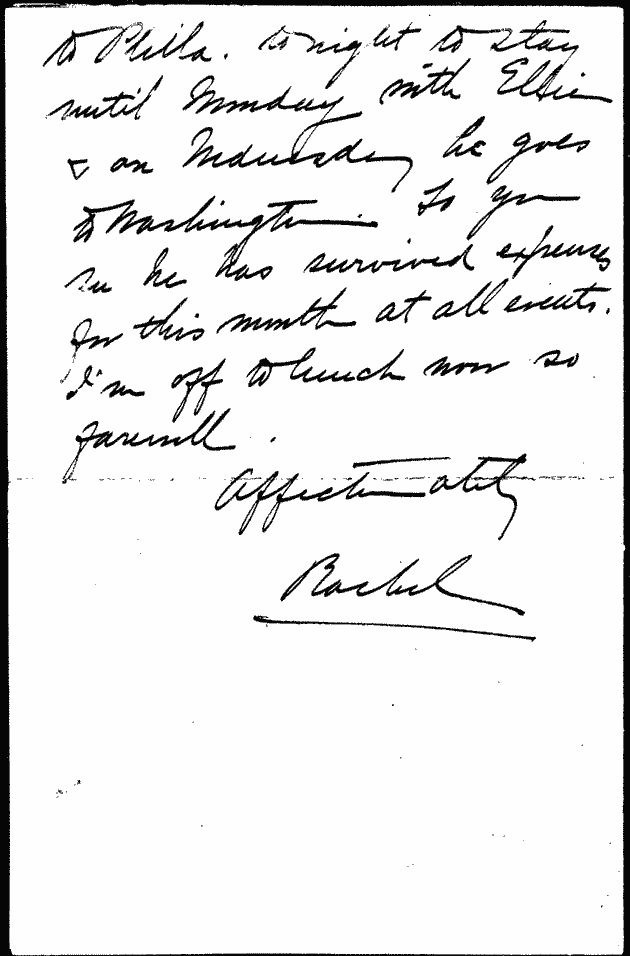 to Phila. tonight to stay
until Monday with Elsie
& on Wednesday he goes
to Washington. So you
see he has survived expenses
for this month at all events.
I'm off to lunch now so
farewell.
Affectionately
Rachel